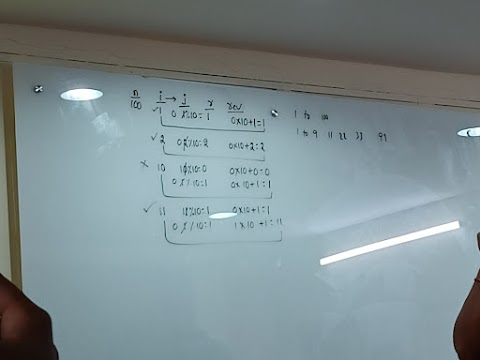 n i → j r rev
100 ✓1 0 1%10=1 0x10+1=1
✓ 2 0 2%10=2 0x10+2=2
x 10 10%10=0 0x10+0=0
0 1%10=1 0x10+1=1
✓ 11 11%10=1 0x10+1=1
0 1%10=1 1x10+1=11
1 to 100
1 to 9 11 22 33 99